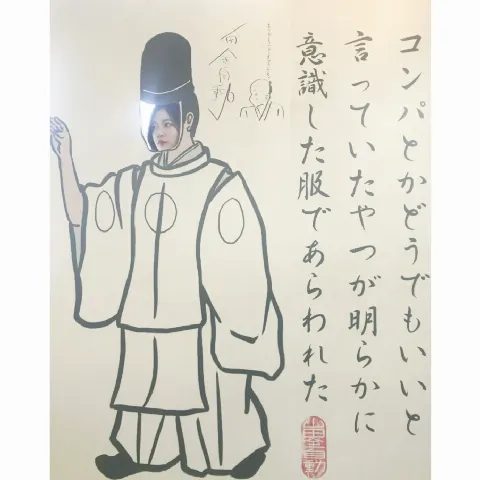 コンパとかどうでもいいと
言っていたやつが明らかに
意識した服であらわれた